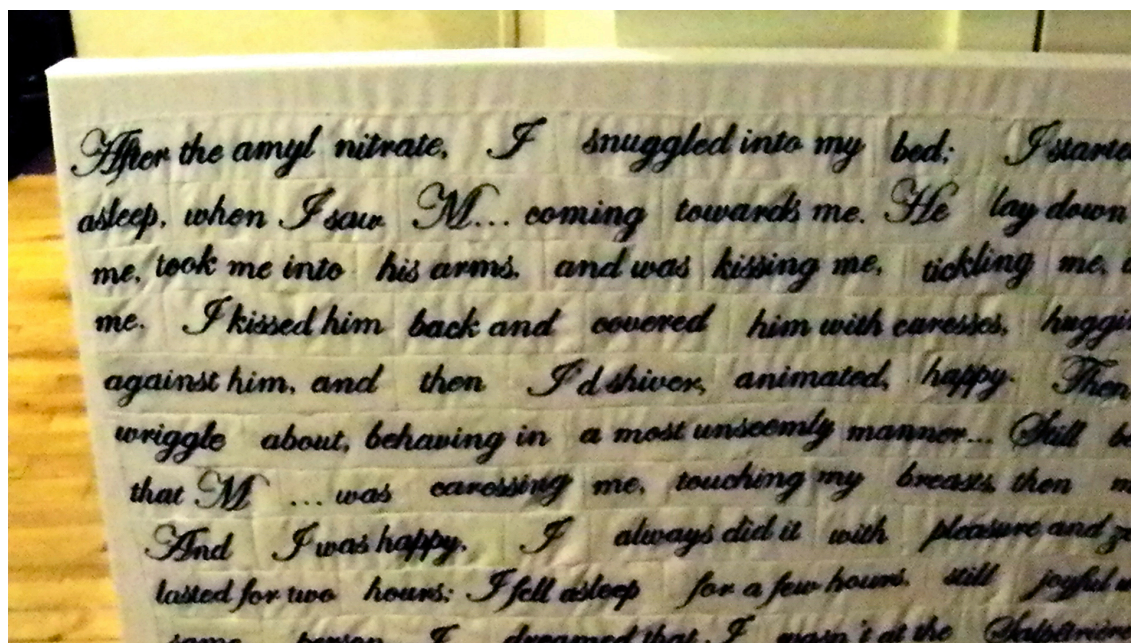 After the amyl nitrate, I snuggled into my bed; I
asleep, when I saw M... coming towards me. He lay down
me, took me into his arms, and was kissing me, tickling me,
me. I kissed him back and covered him with caresses,
against him, and then I'd shiver, animated, happy. Then
wriggle about, behaving in a most unseemly manner... Still
that M ... was caressing me, touching my breasts, then
And I was happy, I always did it with pleasure and
lasted for two hours; I fell asleep for a few hours, still joyful
same person I dreamed that I wasn't at the